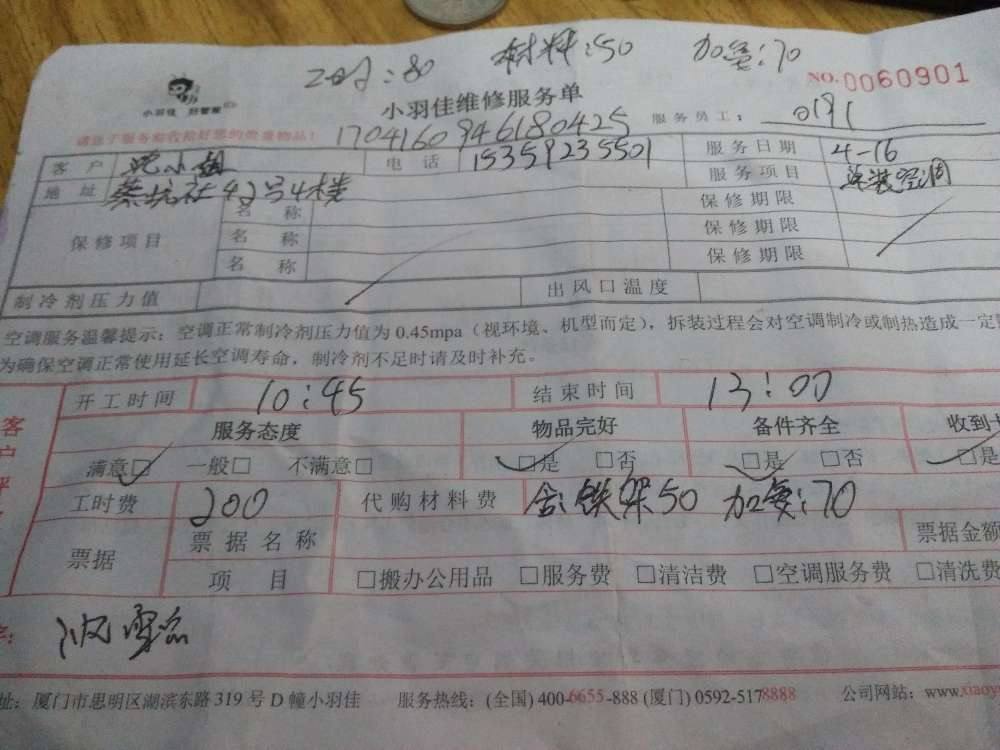 工时:80 材料:50 加氢:70
小羽佳 好管家
NO.0060901
小羽佳维修服务单
请您于服务前收拾好您的贵重物品!
1704160946180425 服务员工: 0191
客户 小姐 电话 15359235501 服务日期 4-16
地址 蔡坑社42号4楼 服务项目 拆装空调
保修项目 名称 保修期限
名称 保修期限
名称 保修期限
制冷剂压力值 出风口温度
空调服务温馨提示:空调正常制冷剂压力值为 0.45mpa(视环境、机型而定),拆装过程会对空调制冷或制热造成一定
为确保空调正常使用延长空调寿命,制冷剂不足时请及时补充。
开工时间 10:45 结束时间 13:00
服务态度 物品完好 备件齐全 收到
满意□ 一般□ 不满意□ □是 □否 □是 □否 □是
工时费 200 代购材料费 含:铁架50 加氢:70
票据 票据名称 票据金额
项目 □搬办公用品 □服务费 □清洁费 □空调服务费 □清洗费
客户评
址:厦门市思明区湖滨东路 319 号 D 幢小羽佳 服务热线:(全国) 400-6655-888 (厦门) 0592-5178888 公司网站:www.xiaoy